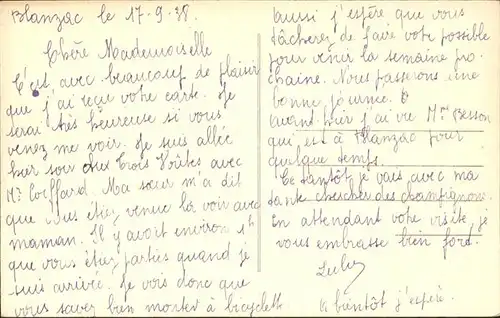 Blanzac le 17-9-38.
Chère Mademoiselle
C'est avec beaucoup de plaisir
que j'ai reçue votre carte. Je
serai très heureuse si vous
venez me voir. Je suis allée
hier soir chez Trois Voûtes avec
Mr Coeffard. Ma sœur m'a dit
que vous étiez venue la voir avec
maman. Il y avait environ 1h
que vous étiez parties quand je
suis arrivée. Je vois donc que
vous savez bien monter à bicyclette
aussi j'espère que vous
tâcherez de faire votre possible
pour venir la semaine pro
chaine. Nous passerons une
bonne journée.
avant hier j'ai vu Mme Besson
qui est à Blanzac pour
quelque temps.
Ce tantôt je vais avec ma
tante chercher des champignons.
En attendant votre visite, je
vous embrasse bien fort.
à bientôt j'espère.